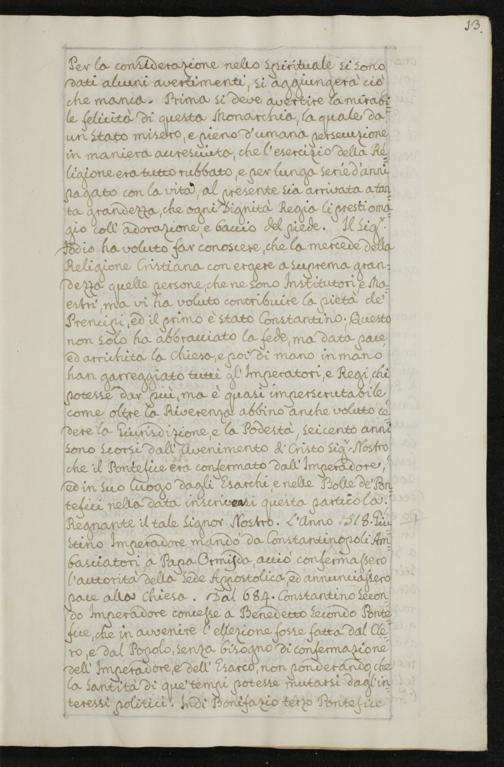 13.
Per la considerazione nello Spirituale si sono
dati alcuni avertimenti, si aggiungerà ciò
che manca. Prima si deve avertire la mirabi=
le felicità di questa Monarchia, la quale da
un stato misero, e pieno d'umana persecuzione
in maniera accresciuta, che l'esercizio della Re=
ligione era tutto rubbato, e per lunga serie d'anni
pagato con la vita, al presente sia arrivata a tan=
ta grandezza, che ogni Dignità Regia li presti oma=
gio coll'adorazione e baccio del piede. Il Sig.r
Iddio ha voluto far conoscere, che la mercede della
Religione Cristiana con ergere a suprema gran=
dezza quelle persone, che ne sono Institutori e Ma=
estri, ma vi ha voluto contribuire la pietà de'
Prencipi, ed il primo è stato Constantino; Questo
non solo ha abbracciato la fede, ma data pace,
ed arrichita la Chiesa, e poi di mano in mano
han garreggiato tutti gl'Imperatori, e Regi chi
potesse dar più, ma è quasi imperscrutabile
come oltre la Riverenza abbino anche voluto ce=
dere la Giurisdizione, e la Podestà, seicento anni
sono scorsi dall'Avenimento di Cristo Sig.r Nostro
che il Pontefice era confermato dall'Imperadore,
ed in suo luogo dagli Esarchi, e nelle Bolle de' Pon=
tefici nella data inscriversi questa particola.
Regnante il tale Signor Nostro. L'Anno 518. Giu=
stino Imperadore mandò da Constantinopoli Am=
basciatori a Papa Ormisda acciò confermassero
l'autorità della Sede Apostolica, ed annunciassero
pace alla Chiesa. Dal 684. Constantino Secon=
do Imperadore concesse a Benedetto Secondo Ponte=
fice, che in avvenire l'ellezione fosse fatta dal Cle=
ro, e dal Popolo, senza bisogno di confermazione
dell'Imperadore, e dell'Esarco, non ponderando, che
la santità di que' tempi potesse mutarsi dagl'in=
teressi politici. Indi Bonifazio terzo Pontefice